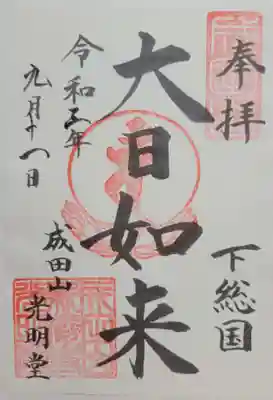 奉拝
下総国
大日如来
成田山
光明堂
令和三年
九月十一日